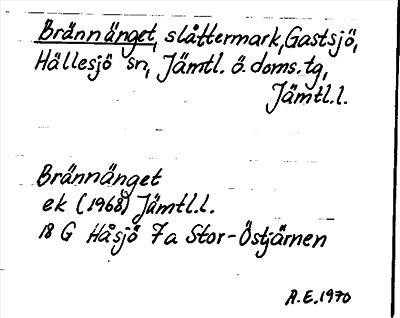 Brännänget, slåttermark, Gastsjö,
Hällesjö sn, Jämtl. ö. doms. tg,
Jämtl.l.
Brännänget
ek (1968) Jämtl.l.
18 G Håsjö 7a Stor-Östjärnen
A.E.1970